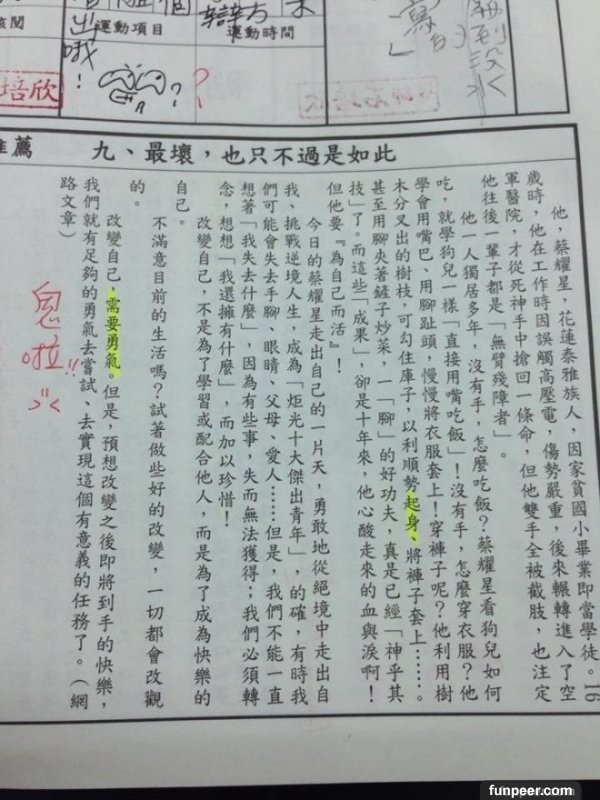 運動項目
運動時間
出哦！
？？
培欣
推薦
九、最壞，也只不過是如此
他，蔡耀星，花蓮泰雅族人，因家貧國小畢業即當學徒。16
歲時，他在工作時因誤觸高壓電，傷勢嚴重，後來輾轉進入了空
軍醫院，才從死神手中搶回一條命，但他雙手全被截肢，也注定
他往後一輩子都是「無臂殘障者」。
他一人獨居多年，沒有手，怎麼吃飯？蔡耀星看狗兒如何
吃，就學狗兒一樣「直接用嘴吃飯」！沒有手，怎麼穿衣服？他
學會用嘴巴、用腳趾頭，慢慢將衣服套上！穿褲子呢？他利用樹
木分叉出的樹枝，可勾住庫子，以利順勢起身、將褲子套上……。
甚至用腳夾著鏟子炒菜，一「腳」的好功夫，真是已經「神乎其
技」了。而這些「成果」，卻是十年來，他心酸走來的血與淚啊！
但他要『為自己而活』！
今日的蔡耀星走出自己的一片天，勇敢地從絕境中走出自
我、挑戰逆境人生，成為「炬光十大傑出青年」，的確，有時我
們可能會失去手腳、眼睛、父母、愛人……但是，我們不能一直
想著「我失去什麼」，因為有些事，失而無法獲得；我們必須轉
念，想想「我還擁有什麼」，而加以珍惜！
改變自己，不是為了學習或配合他人，而是為了成為快樂的
自己。
不滿意目前的生活嗎？試著做些好的改變，一切都會改觀
的。
改變自己，需要勇氣。但是，預想改變之後即將到手的快樂，
我們就有足夠的勇氣去嘗試、去實現這個有意義的任務了。（網
路文章）
鬼啦!!
funpeer.com